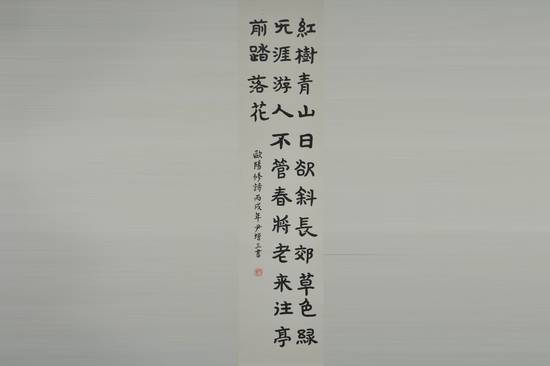 紅樹青山日欲斜長郊草色緑
无涯游人不管春將老来往亭
前踏落花
歐陽修詩丙戌年尹增三書